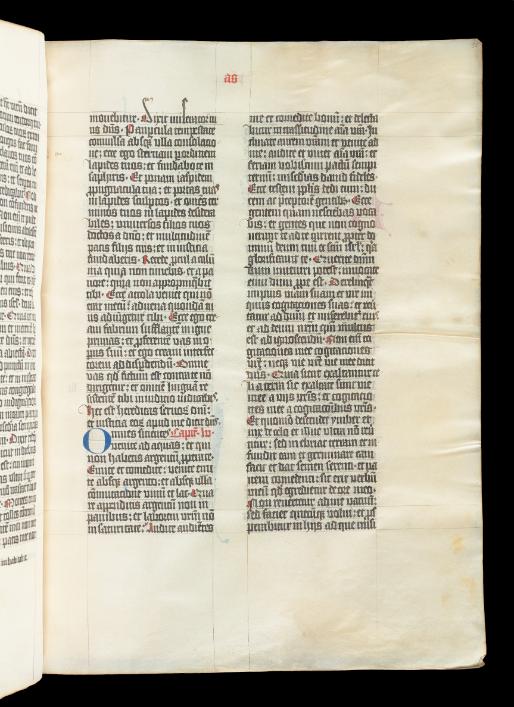 as
movebitur. Dixit miserator tu
us dñs. Paupercula tempestate
convulsa absq; ulla consolatio
ne; ecce ego sternam p ordinem
lapides tuos; et fundabo te in
saphiris. Et ponam iaspidem
ppugnacula tua; et portas tuas
in lapides sculptos. et oms ter
minos tuos in lapides desidera
biles; universos filios tuos
doctos a dño; et multitudinē
pacis filijs tuis; et in iusticia
fundaberis. Recede procul a calū
nia quia non timebis; et a pa
vore; quia non appropinquabit
tibi. Ecce accola veniet qui nō
erat mecū; advena quondā tu
us adiungetur tibi. Ecce ego cre
avi fabrum sufflantē in igne
prunas; et proferentē vas in o
pus suū; et ego creavi interfec
torem ad disperdendū. Omne
vas qd fictum est contra te nō
dirigetur; et omnem linguā re
sistentē tibi in iudicio iudicabis.
Hec est hereditas servorū dñi;
et iusticia eorū apud me dicit dñs.
Omnes sicientes Capitm lv.
venite ad aquas; et qui
non habetis argentū pperate.
Emite et comedite; venite emi
te absq; argento; et absq; ulla
cōmutacione vinū et lac. Qua
re appenditis argentū non in
panibus; et laborem vrm non
in saturitate. Audite audientes
me et comedite bonū; et delecta
bitur in crassitudine aīa vrā. In
clinate aurem vram et venite ad
me; audite et vivet aīa vrā; et
feriam vobiscum pactū sempi
ternū; misericordias david fideles.
Ecce testem pplis dedi eum; du
cem ac preceptorē gentibus. Ecce
gentem quam nesciebas voca
bis; et gentes que non cogno
verunt te ad te current; propter do
minū deum tuū et scm israhel; qa
glorificavit te. Querite dnm
dum inveniri potest; invocate
eum dum ppe est. Derelinquat
impius viam suam et vir ini
quus cogitationes suas; et rever
tatur ad dnm et miserebitur eius
et ad deum nrm qm multus
est ad ignoscendū. Non eni co
gitationes mee cogitationes
vrē; neq; vie vrē vie mee dicit
dñs. Quia sicut exaltantur ce
li a terra sic exaltate sunt vie
mee a vijs vris; et cogitacio
nes mee a cogitacionibus vris.
Et quomodo descendit ymber et
nix de celo et illuc ultra nō rever
titur; sed inebriat terram et in
fundit eam et germinare eam
facit et dat semen serenti et pa
nem comedenti; sic erit verbū
meū qd egredietur de ore meo.
Non revertetur ad me vacuū;
sed faciet quecūq; volui; et ps
perabitur in hijs ad que misi